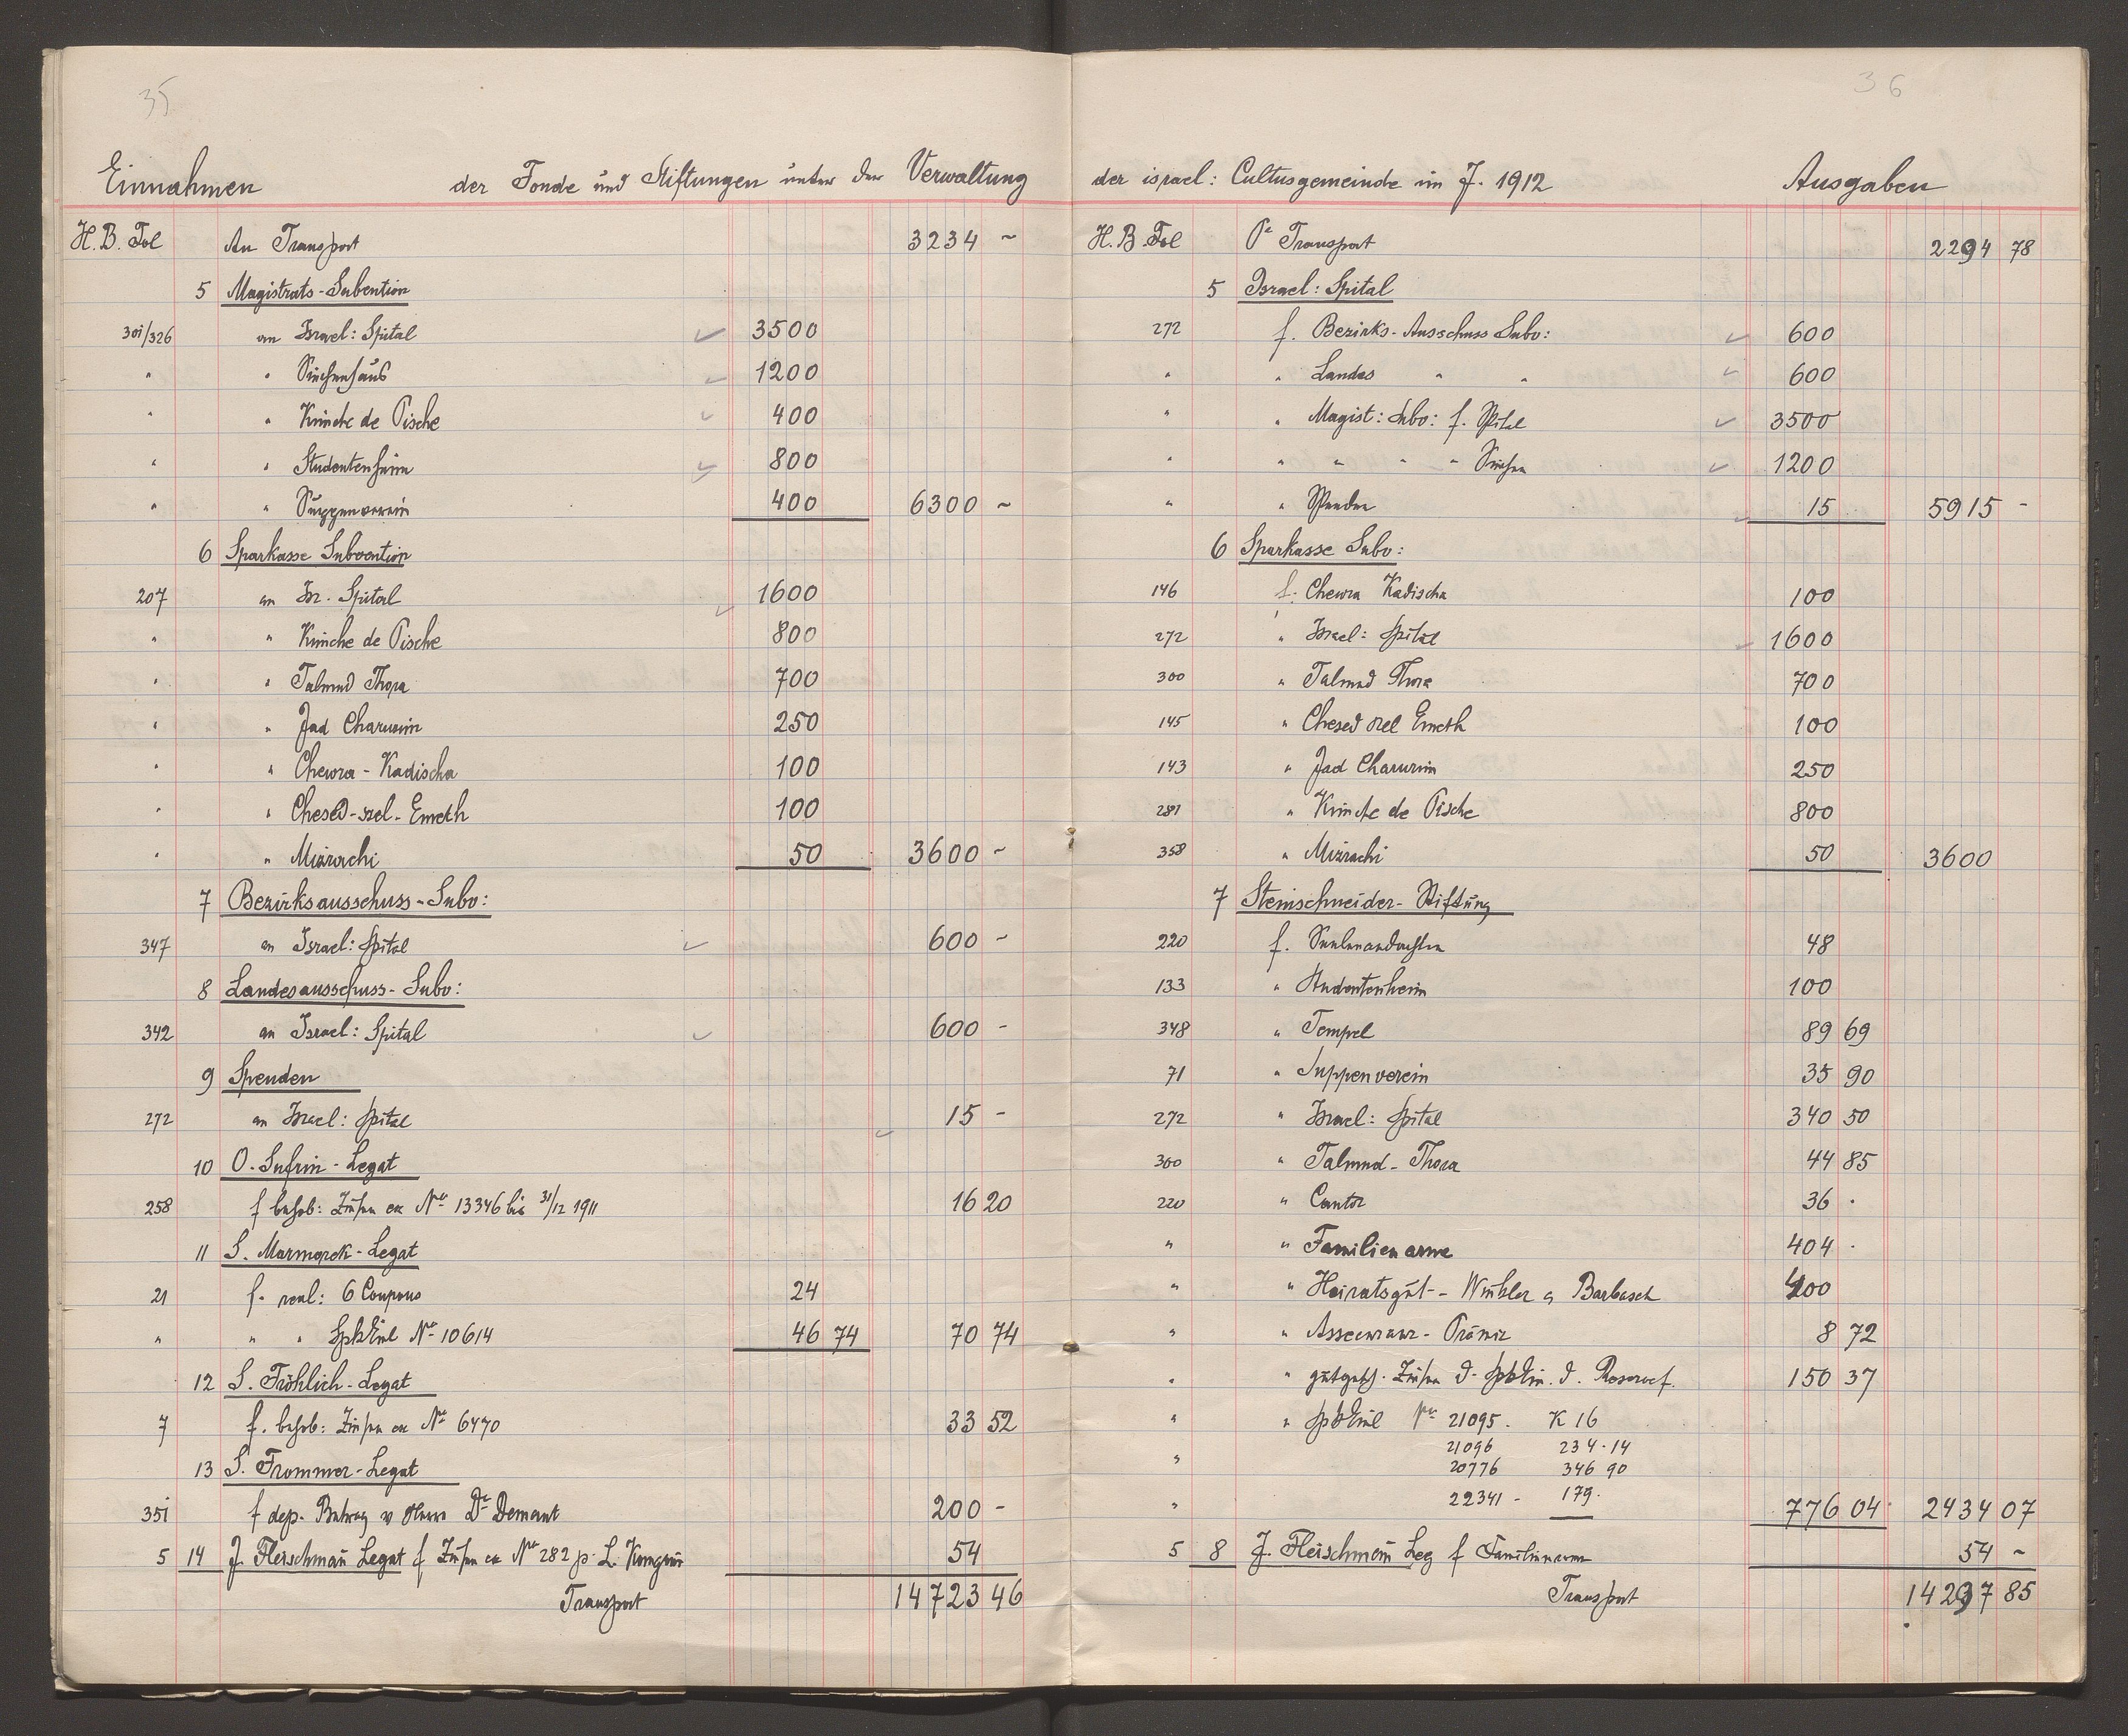 35
Einnahmen der Fonde und Stiftungen unter der Verwaltung
H. B. Fol An Transport 3234 ~
5 Magistrats-Subention
301/326 an Israel: Spital 3500
" " Siechenhaus 1200
" " Kimche de Pische 400
" " Studentenheim 800
" " Suppenverein 400 6300 ~
6 Sparkasse Subvention
207 an Isr. Spital 1600
" " Kimche de Pische 800
" " Talmud Thora 700
" " Jad Charuzim 250
" " Chewra-Kadischa 100
" " Chesed-szel-Emeth 100
" " Mizrachi 50 3600 ~
7 Bezirksausschuss-Subv:
347 an Israel: Spital 600 -
8 Landesausschuss-Subv:
342 an Israel: Spital 600 -
9 Spenden
272 an Israel: Spital 15 -
10 O. Sufrin-Legat
258 f behob: Zinsen ex No 13346 bis 31/12 1911 16 20
11 S. Marmorek-Legat
21 f. real: 6 Coupons 24
" " " Spkeinl No 10614 46 74 70 74
12 S. Fröhlich-Legat
7 f. behob: Zinsen ex No 6470 33 52
13 S. Frommer-Legat
351 f dep. Betrag v Herrn Dr Demant 200 -
5 14 J. Fleischman Legat f Zinsen ex No 282 p. L. 54
Transport 14723 46
36
der israel: Cultusgemeinde im J. 1912 Ausgaben
H. B. Fol Pr Transport 2294 78
5 Israel: Spital
272 f. Bezirks-Ausschuss Subv: 600
" " Landes " " 600
" " Magist: Subv: f. Spital 3500
" " " " " Siechen 1200
" " Spenden 15 5915 -
6 Sparkasse Subv:
146 f. Chewra Kadischa 100
272 " Israel: Spital 1600
300 " Talmud Thora 700
145 " Chesed szel Emeth 100
143 " Jad Charuzim 250
281 " Kimche de Pische 800
358 " Mizrachi 50 3600
7 Steinschneider-Stiftung
220 f. Seelenandachten 48
133 " Studentenheim 100
348 " Tempel 89 69
71 " Suppenverein 35 90
272 " Israel: Spital 340 50
300 " Talmud-Thora 44 85
220 " Cantor 36 .
" " Familienarme 404 .
" " Heiratsgut - Winkler & Barbasch 400
" " Assecuranz-Prämie 8 72
" " gutgesch. Zinsen d. Spkein. d. Reservef. 150 37
" " Spkeinl No 21095. K 16
21096 234.14
" 20776 346 90
" 22341 - 179. 776 04 2434 07
5 8 J. Fleischman Leg f Familienarme 54 ~
Transport 14297 85